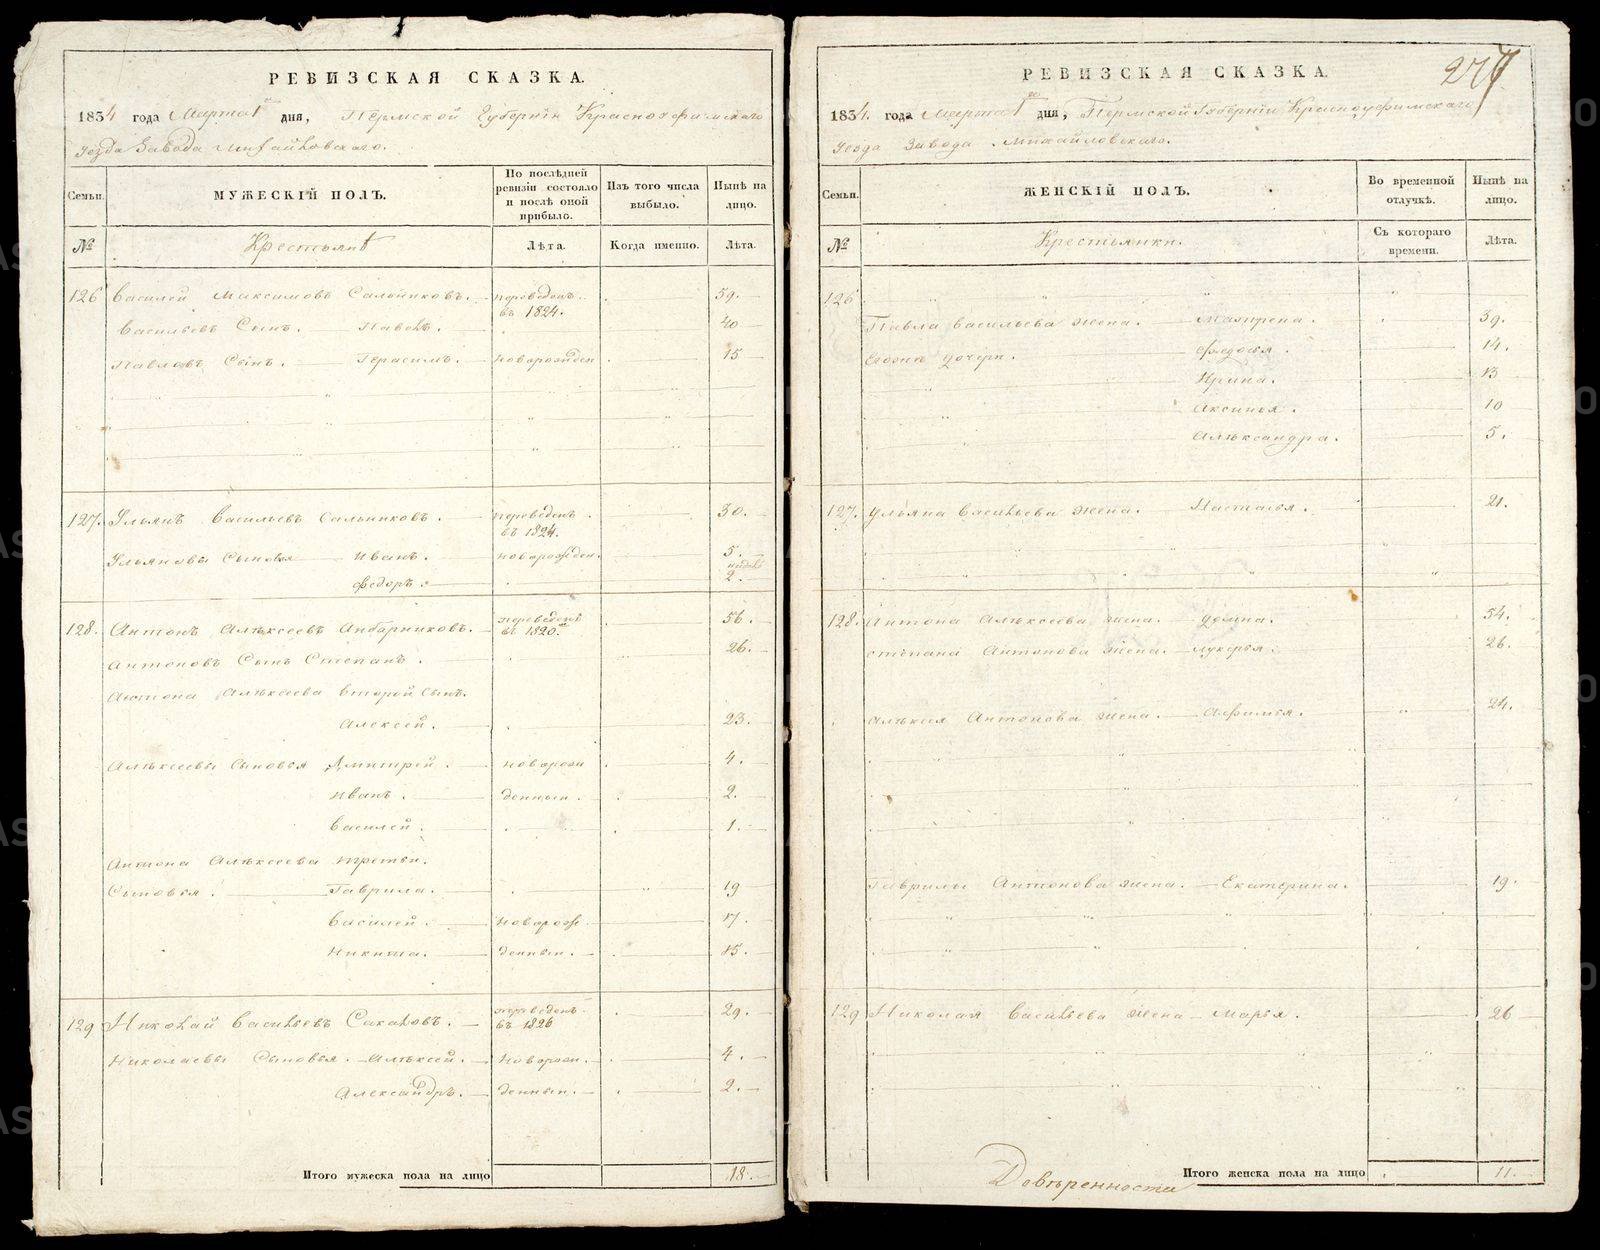 РЕВИЗСКАЯ СКАЗКА.
1834 года Марта 1 дня, Пермской Губернии Красноуфимскаго
уезда Завода Михайловскаго.
Семьи. МУЖЕСКІЙ ПОЛЪ. По послѣдней ревизіи состояло и послѣ оной прибыло. Изъ того числа выбыло. Нынѣ на лицо.
№ Крестьянѣ Лѣта. Когда именно. Лѣта.
126 Василей Максимовъ Сальниковъ. переведенъ въ 1824. 59.
Васильевъ Сынъ. Павелъ. 40
Павловъ Сынъ. Герасимъ. новорожден 15
127. Ульянъ Васильевъ Сальниковъ. переведенъ въ 1824. 30.
Ульяновы Сыновья Иванъ. новорожден. 5.
Федоръ. 2.
128. Антонъ Алѣксеевъ Анбарниковъ. переведенъ въ 1820. 56.
Антоновъ Сынъ Степанъ. 26.
Антона Алѣксеева второй сынъ.
Алексей. 23.
Алѣксеевы Сыновья Дмитрей. новорож 4.
Иванъ. денныи. 2.
Василей. 1.
Антона Алѣксеева третьи.
Сыновья. Гаврила. 19
Василей. новорож 17.
Никита. денныи. 15.
129 Николай Васильевъ Сакаловъ. переведенъ въ 1826 29.
Николаевы Сыновья. Алѣксей. Новорож. 4.
Александръ. денныи. 2.
Итого мужеска пола на лицо 18.
277
РЕВИЗСКАЯ СКАЗКА.
1834. года Марта 1го дня, Пермской Губерніи Красноуфимскаго
Уезда Завода Михайловскаго.
Семьи. ЖЕНСКІЙ ПОЛЪ. Во временной отлучкѣ. Нынѣ на лицо.
№ Крестьянки. Съ котораго времени. Лѣта.
126
Павла Васильева жена. Матрена. 39.
Егожъ дочери. Федосья. 14.
Ирина. 13
Аксинья. 10
Алѣксандра. 5.
127. Ульяна Васильева жена. Настасья. 21.
128. Антона Алѣксеева жена. Домна. 54.
Степана Антонова жена. Лукерья. 26.
Алѣксея Антонова жена. Афимья. 24.
Гаврилы Антонова жена. Екатерина. 19.
129 Николая Васильева жена Марья. 26
Итого женска пола на лицо 11.
Довѣренности